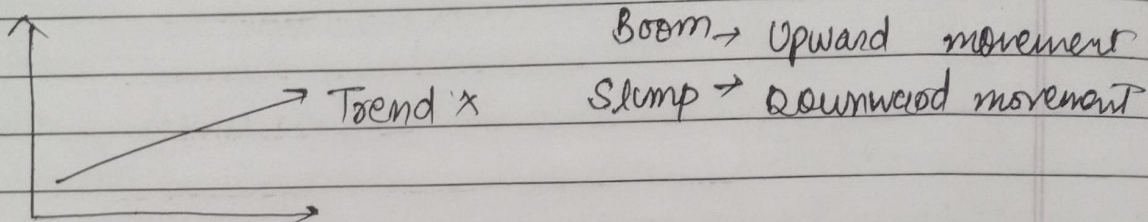 Boom → Upward movement
Trend x Slump → Downward movement